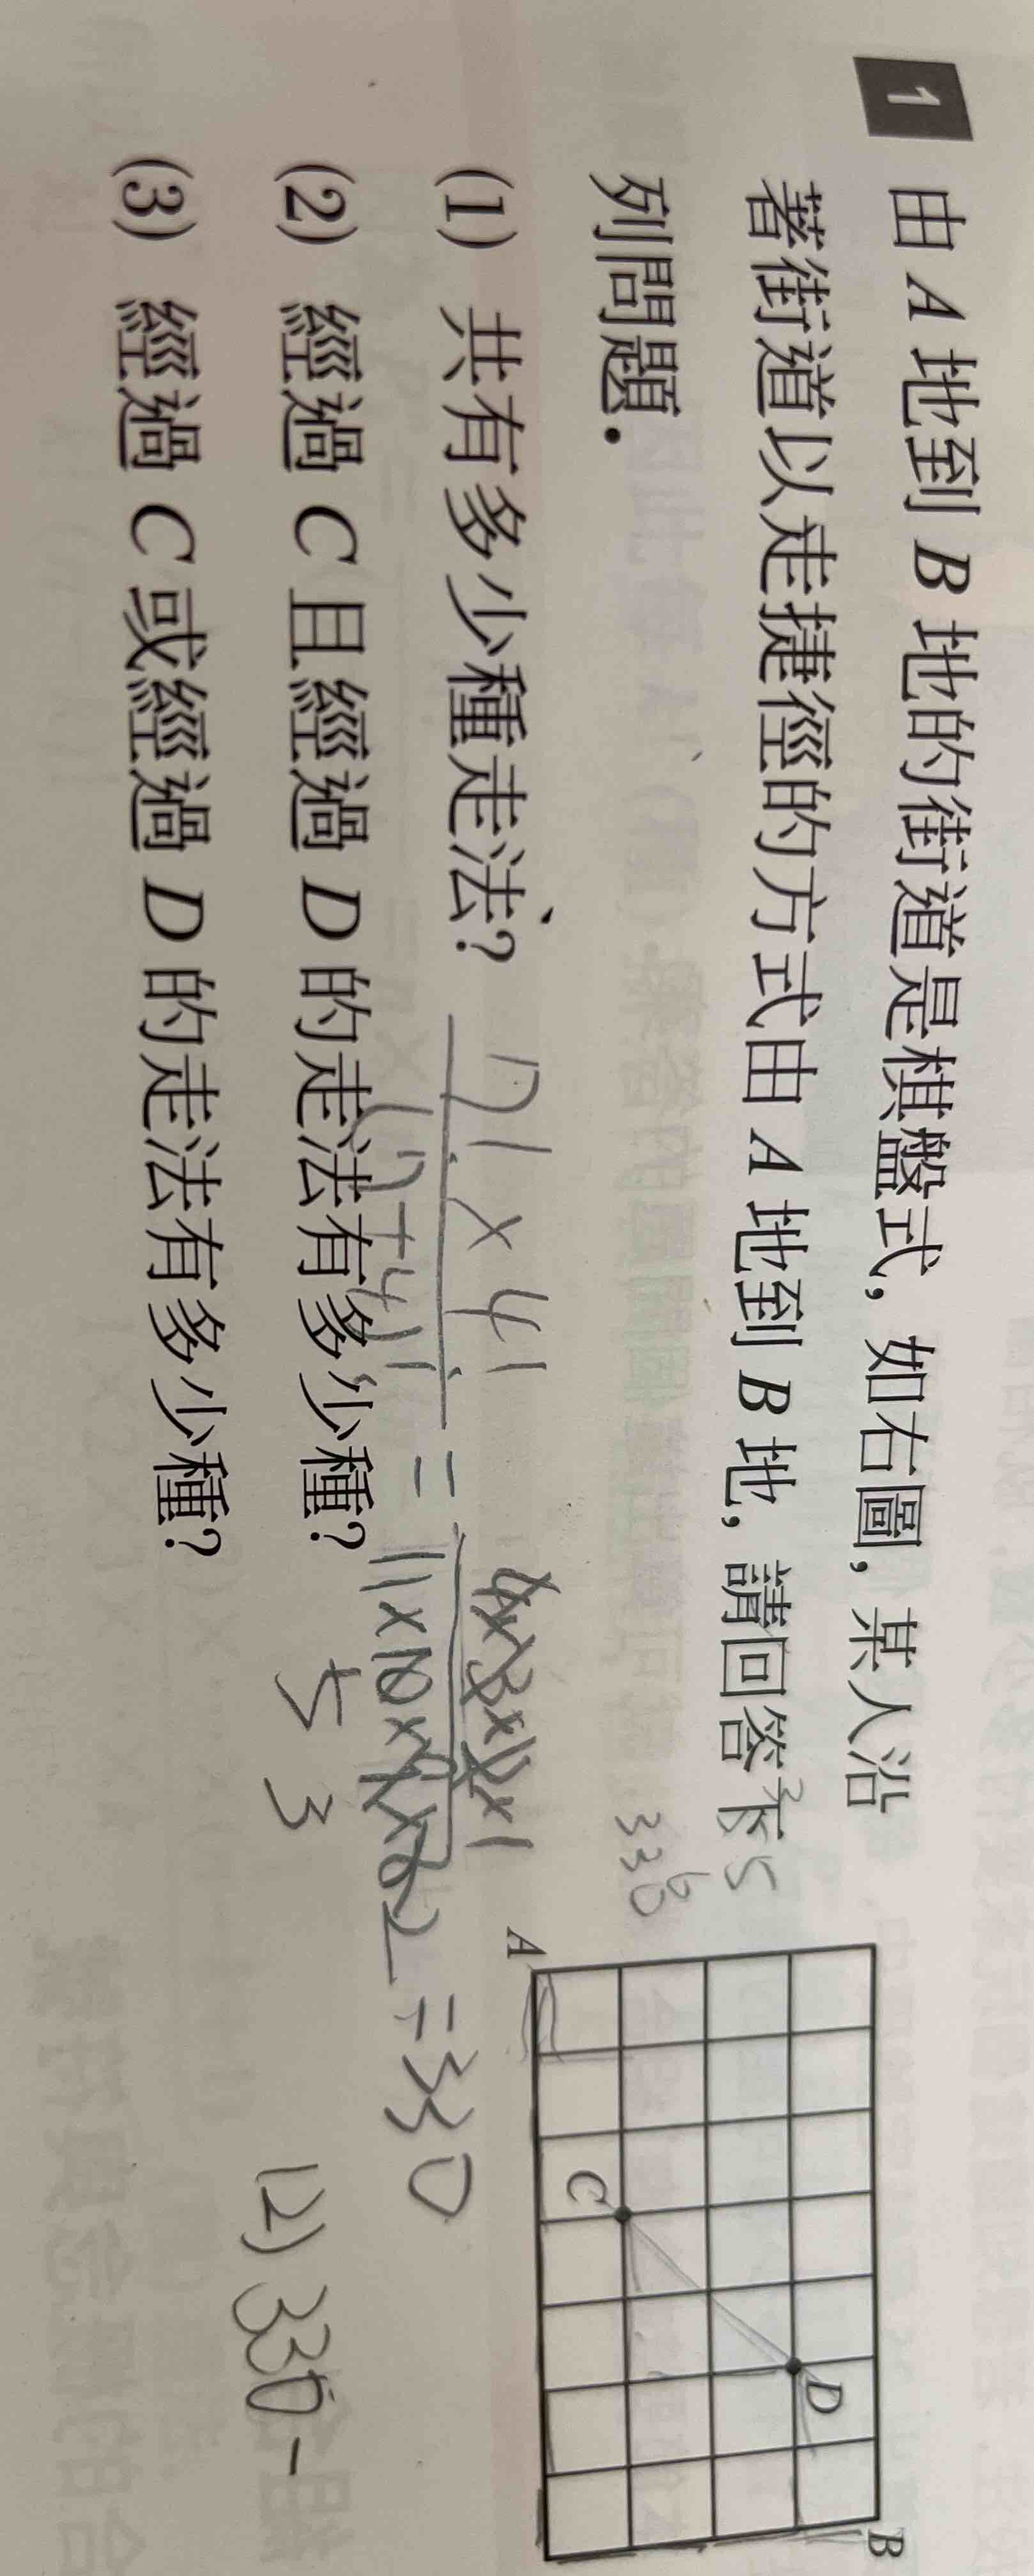 1 由 A 地到 B 地的街道是棋盤式，如右圖，某人沿
著街道以走捷徑的方式由 A 地到 B 地，請回答下
列問題．
(1) 共有多少種走法？
(2) 經過 C 且經過 D 的走法有多少種？
(3) 經過 C 或經過 D 的走法有多少種？
B
D
C
A
=330
5
3
(2) 330-